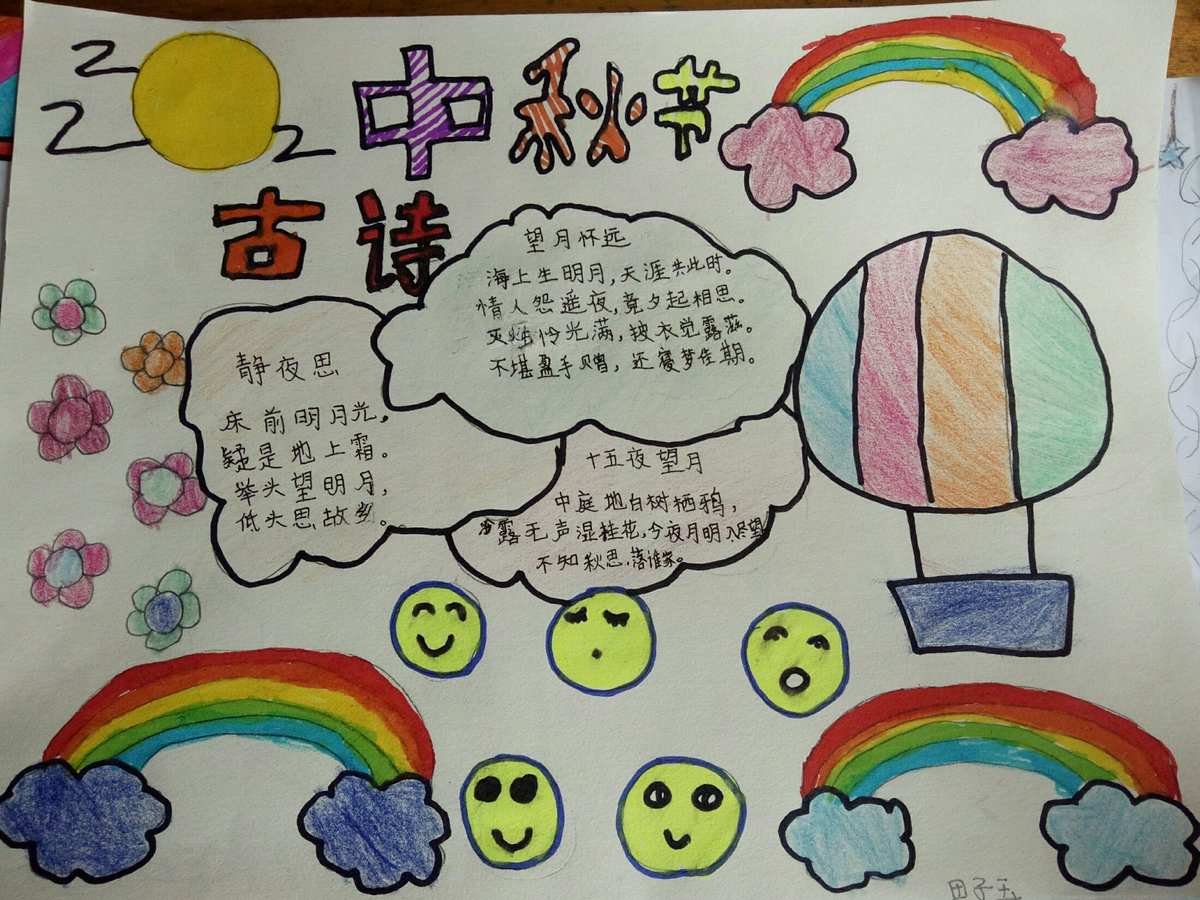 中秋节
古诗
望月怀远
海上生明月,天涯共此时。
情人怨遥夜,竟夕起相思。
灭烛怜光满,披衣觉露滋。
不堪盈手赠,还寝梦佳期。
静夜思
床前明月光,
疑是地上霜。
举头望明月,
低头思故乡。
十五夜望月
中庭地白树栖鸦,
冷露无声湿桂花,今夜月明人尽望
不知秋思,落谁家。
田子玉